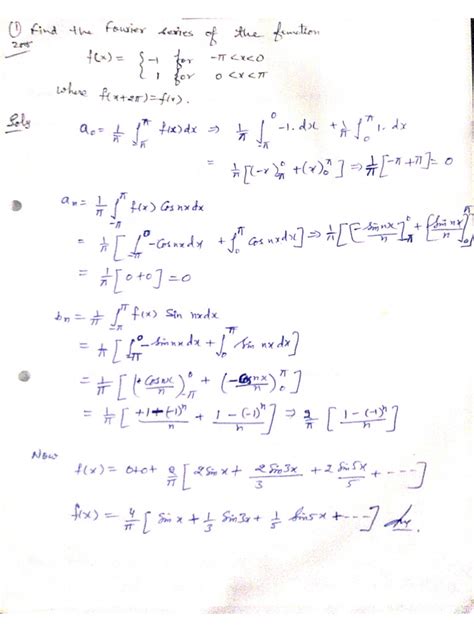 ① Find the Fourier series of the function
f(x) = { -1 for -π < x < 0
1 for 0 < x < π
where f(x+2π) = f(x).
Soln
a₀ = 1/π ∫_{-π}^{π} f(x)dx ⇒ 1/π ∫_{-π}^{0} -1. dx + 1/π ∫_{0}^{π} 1. dx
= 1/π [(-x)_{-π}^{0} + (x)_{0}^{π}] ⇒ 1/π [-π + π] = 0
aₙ = 1/π ∫_{-π}^{π} f(x) Cos nx dx
= 1/π [∫_{-π}^{0} -Cos nx dx + ∫_{0}^{π} Cos nx dx] ⇒ 1/π [[-Sin nx/n]_{-π}^{0} + [Sin nx/n]_{0}^{π}
= 1/π [0+0] = 0
bₙ = 1/π ∫_{-π}^{π} f(x) Sin nx dx
= 1/π [∫_{-π}^{0} -Sin nx dx + ∫_{0}^{π} Sin nx dx]
= 1/π [(Cos nx/n)_{-π}^{0} + (-Cos nx/n)_{0}^{π}]
= 1/π [+1-(-1)ⁿ/n + 1-(-1)ⁿ/n] ⇒ 2/π [1-(-1)ⁿ/n]
Now
f(x) = 0+0+ 2/π [2 Sin x + 2 Sin 3x/3 + 2 Sin 5x/5 + ----]
f(x) = 4/π [Sin x + 1/3 Sin 3x + 1/5 Sin 5x + ---]